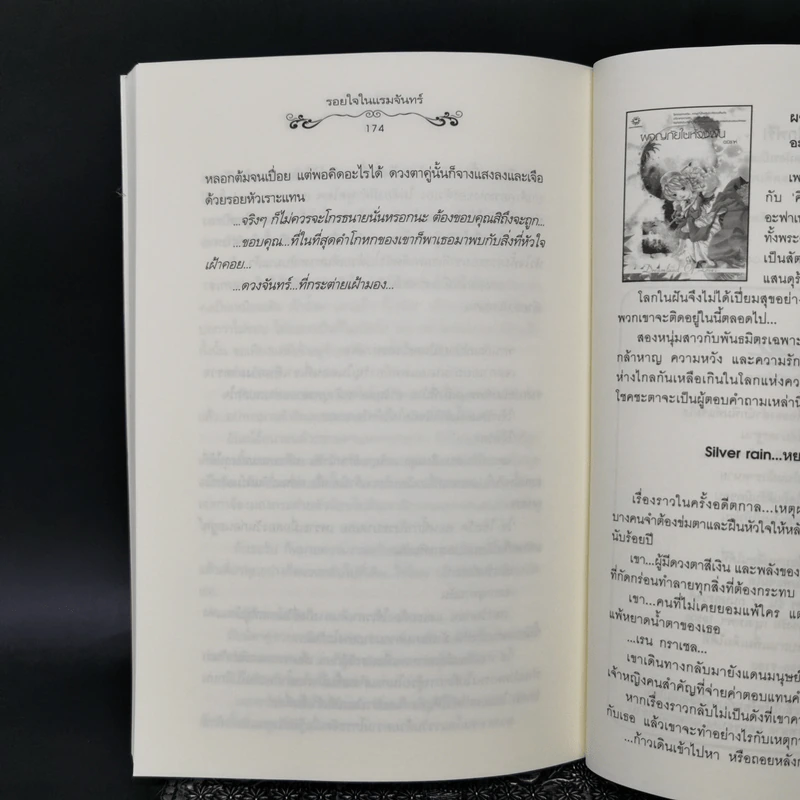 รอยใจในแรมจันทร์
174
หลอกต้มจนเปื่อย แต่พอคิดอะไรได้ ดวงตาคู่นั้นก็จางแสงลงและเจือ
ด้วยรอยหัวเราะแทน
...จริงๆ ก็ไม่ควรจะโกรธนายนั่นหรอกนะ ต้องขอบคุณสิถึงจะถูก...
...ขอบคุณ...ที่ในที่สุดคำโกหกของเขาก็พาเธอมาพบกับสิ่งที่หัวใจ
เฝ้าคอย...
...ดวงจันทร์...ที่กระต่ายเฝ้ามอง...
ผจญภัยในห้วงฝัน
ผจ
อะ
เพ
กับ 'ค
อะฟาเ
ทั้งพระ
เป็นสัต
แสนดุร้
โลกในฝันจึงไม่ได้เปี่ยมสุขอย่าง
พวกเขาจะติดอยู่ในนี้ตลอดไป...
สองหนุ่มสาวกับพันธมิตรเฉพาะ
กล้าหาญ ความหวัง และความรัก
ห่างไกลกันเหลือเกินในโลกแห่งคว
โชคชะตาจะเป็นผู้ตอบคำถามเหล่านี้
Silver rain...หย
เรื่องราวในครั้งอดีตกาล...เหตุผ
บางคนจำต้องข่มตาและฝืนหัวใจให้หลั
นับร้อยปี
เขา...ผู้มีดวงตาสีเงิน และพลังของ
ที่กัดกร่อนทำลายทุกสิ่งที่ต้องกระทบ
เขา...คนที่ไม่เคยยอมแพ้ใคร แต่
แพ้หยาดน้ำตาของเธอ
...เรน กราเซล...
เขาเดินทางกลับมายังแดนมนุษย์
เจ้าหญิงคนสำคัญที่จ่ายค่าตอบแทนค่
หากเรื่องราวกลับไม่เป็นดังที่เขาคา
กับเธอ แล้วเขาจะทำอย่างไรกับเหตุกา
...ก้าวเดินเข้าไปหา หรือถอยหลังก